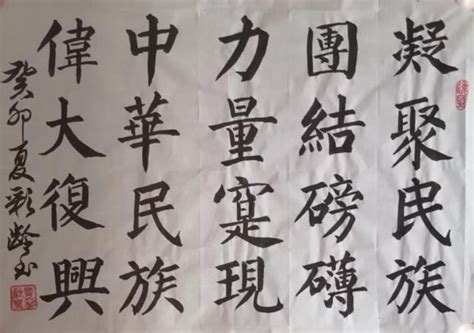 凝聚民族
團結磅礴
力量寔現
中華民族
偉大復興
癸卯夏彩齡书